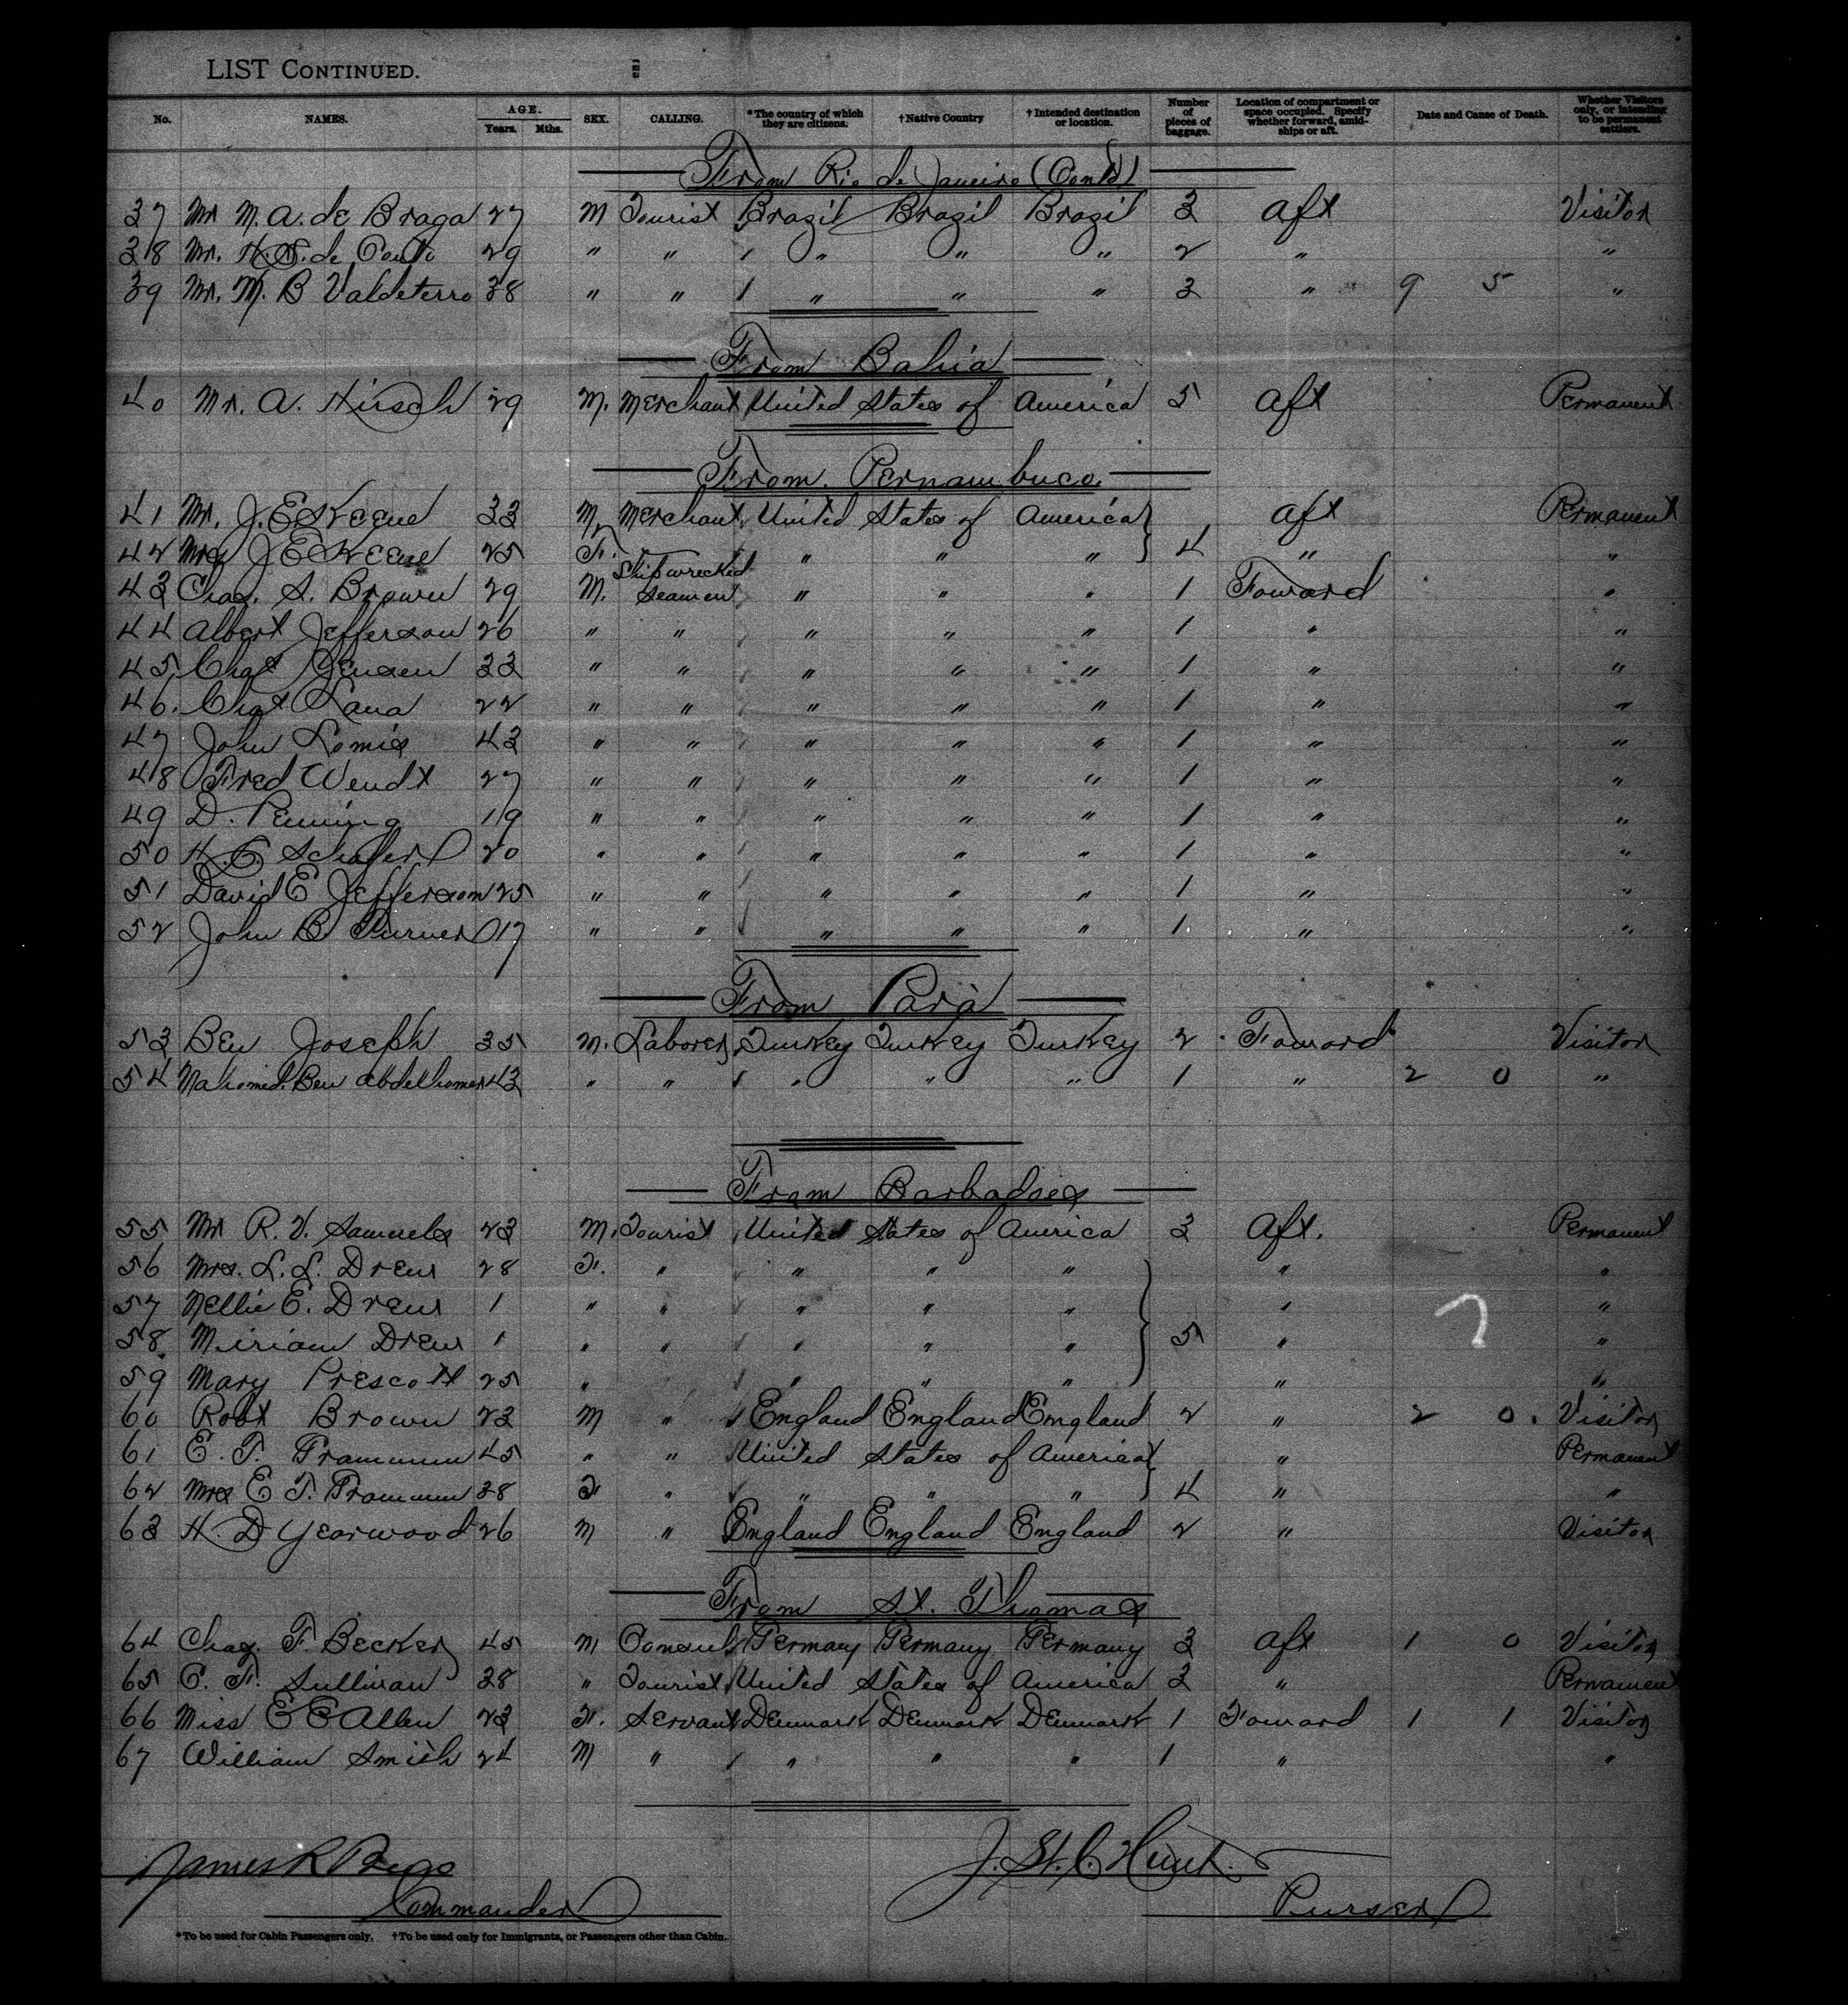 LIST CONTINUED.
No. NAMES. AGE. Years. Mths. SEX. CALLING. *The country of which they are citizens. †Native Country †Intended destination or location. Number of pieces of baggage. Location of compartment or space occupied. Specify whether forward, amidships or aft. Date and Cause of Death. Whether Visitors only, or intending to be permanent settlers.
From Rio de Janeiro (Contd)
37 Mr M. A. de Braga 27 M Tourist Brazil Brazil Brazil 3 aft Visitor
38 Mr. de 29 " " " " " 2 " "
39 Mr. M. B Valdeterro 38 " " " " " 3 " 9 5 "
From Bahia
40 Mr. A. Hirsch 29 M. Merchant United States of America 5 aft Permanent
From Pernambuco
41 Mr. J. E Keene 33 M. Merchant United States of America aft Permanent
42 Mrs J E Keene 25 F. " " " 4 " "
43 Chas. S. Brown 29 M. Shipwrecked Seamen " " " 1 Foward "
44 Albert Jefferson 26 " " " " " 1 " "
45 Chas Jensen 33 " " " " " 1 " "
46. Chas Lana 22 " " " " " 1 " "
47 John Lomis 43 " " " " " 1 " "
48 Fred Wendt 27 " " " " " 1 " "
49 D. 19 " " " " " 1 " "
50 H. C Schafer 20 " " " " " 1 " "
51 David E Jefferson 25 " " " " " 1 " "
52 John B. Turner 17 " " " " " 1. " "
From Para
53 Ben Joseph 35 M. Laborer Turkey Turkey Turkey 2 Foward Visitor
54 Mahomed Ben 43 " " " " " 1 " 2 0 "
From Barbados
55 Mr R. V. Samuels 23 M. Tourist United States of America 3 aft. Permanent
56 Mrs. L. L. Drew 28 F. " " " " " "
57 Nellie E. Drew 1 " " " " " " "
58. Miriam Drew 1 " " " " " 5 " "
59 Mary Prescott 25 " " " " " "
60 Robt Brown 23 M " England England England 2 " 2 0. Visitor
61 E. T. 45 " " United States of America " Permanent
62 Mrs E T. 38 F " " " " 4 " "
63 H. D Yearwood 26 M " England England England 2 " Visitor
From St. Thomas
64 Chas. F. Becker 45 M Consul Germany Germany Germany 3 aft 1 0 Visitor
65 C. F. Sullivan 38 " Tourist United States of America 3 " Permanent
66 Miss E E Allen 23 F. Servant Denmark Denmark Denmark 1 Foward 1 1 Visitor
67 William Smith 24 M " " " " 1 " "
James R Beers J. St. C. Hunt.
Commander Purser
*To be used for Cabin Passengers only. †To be used only for Immigrants, or Passengers other than Cabin.